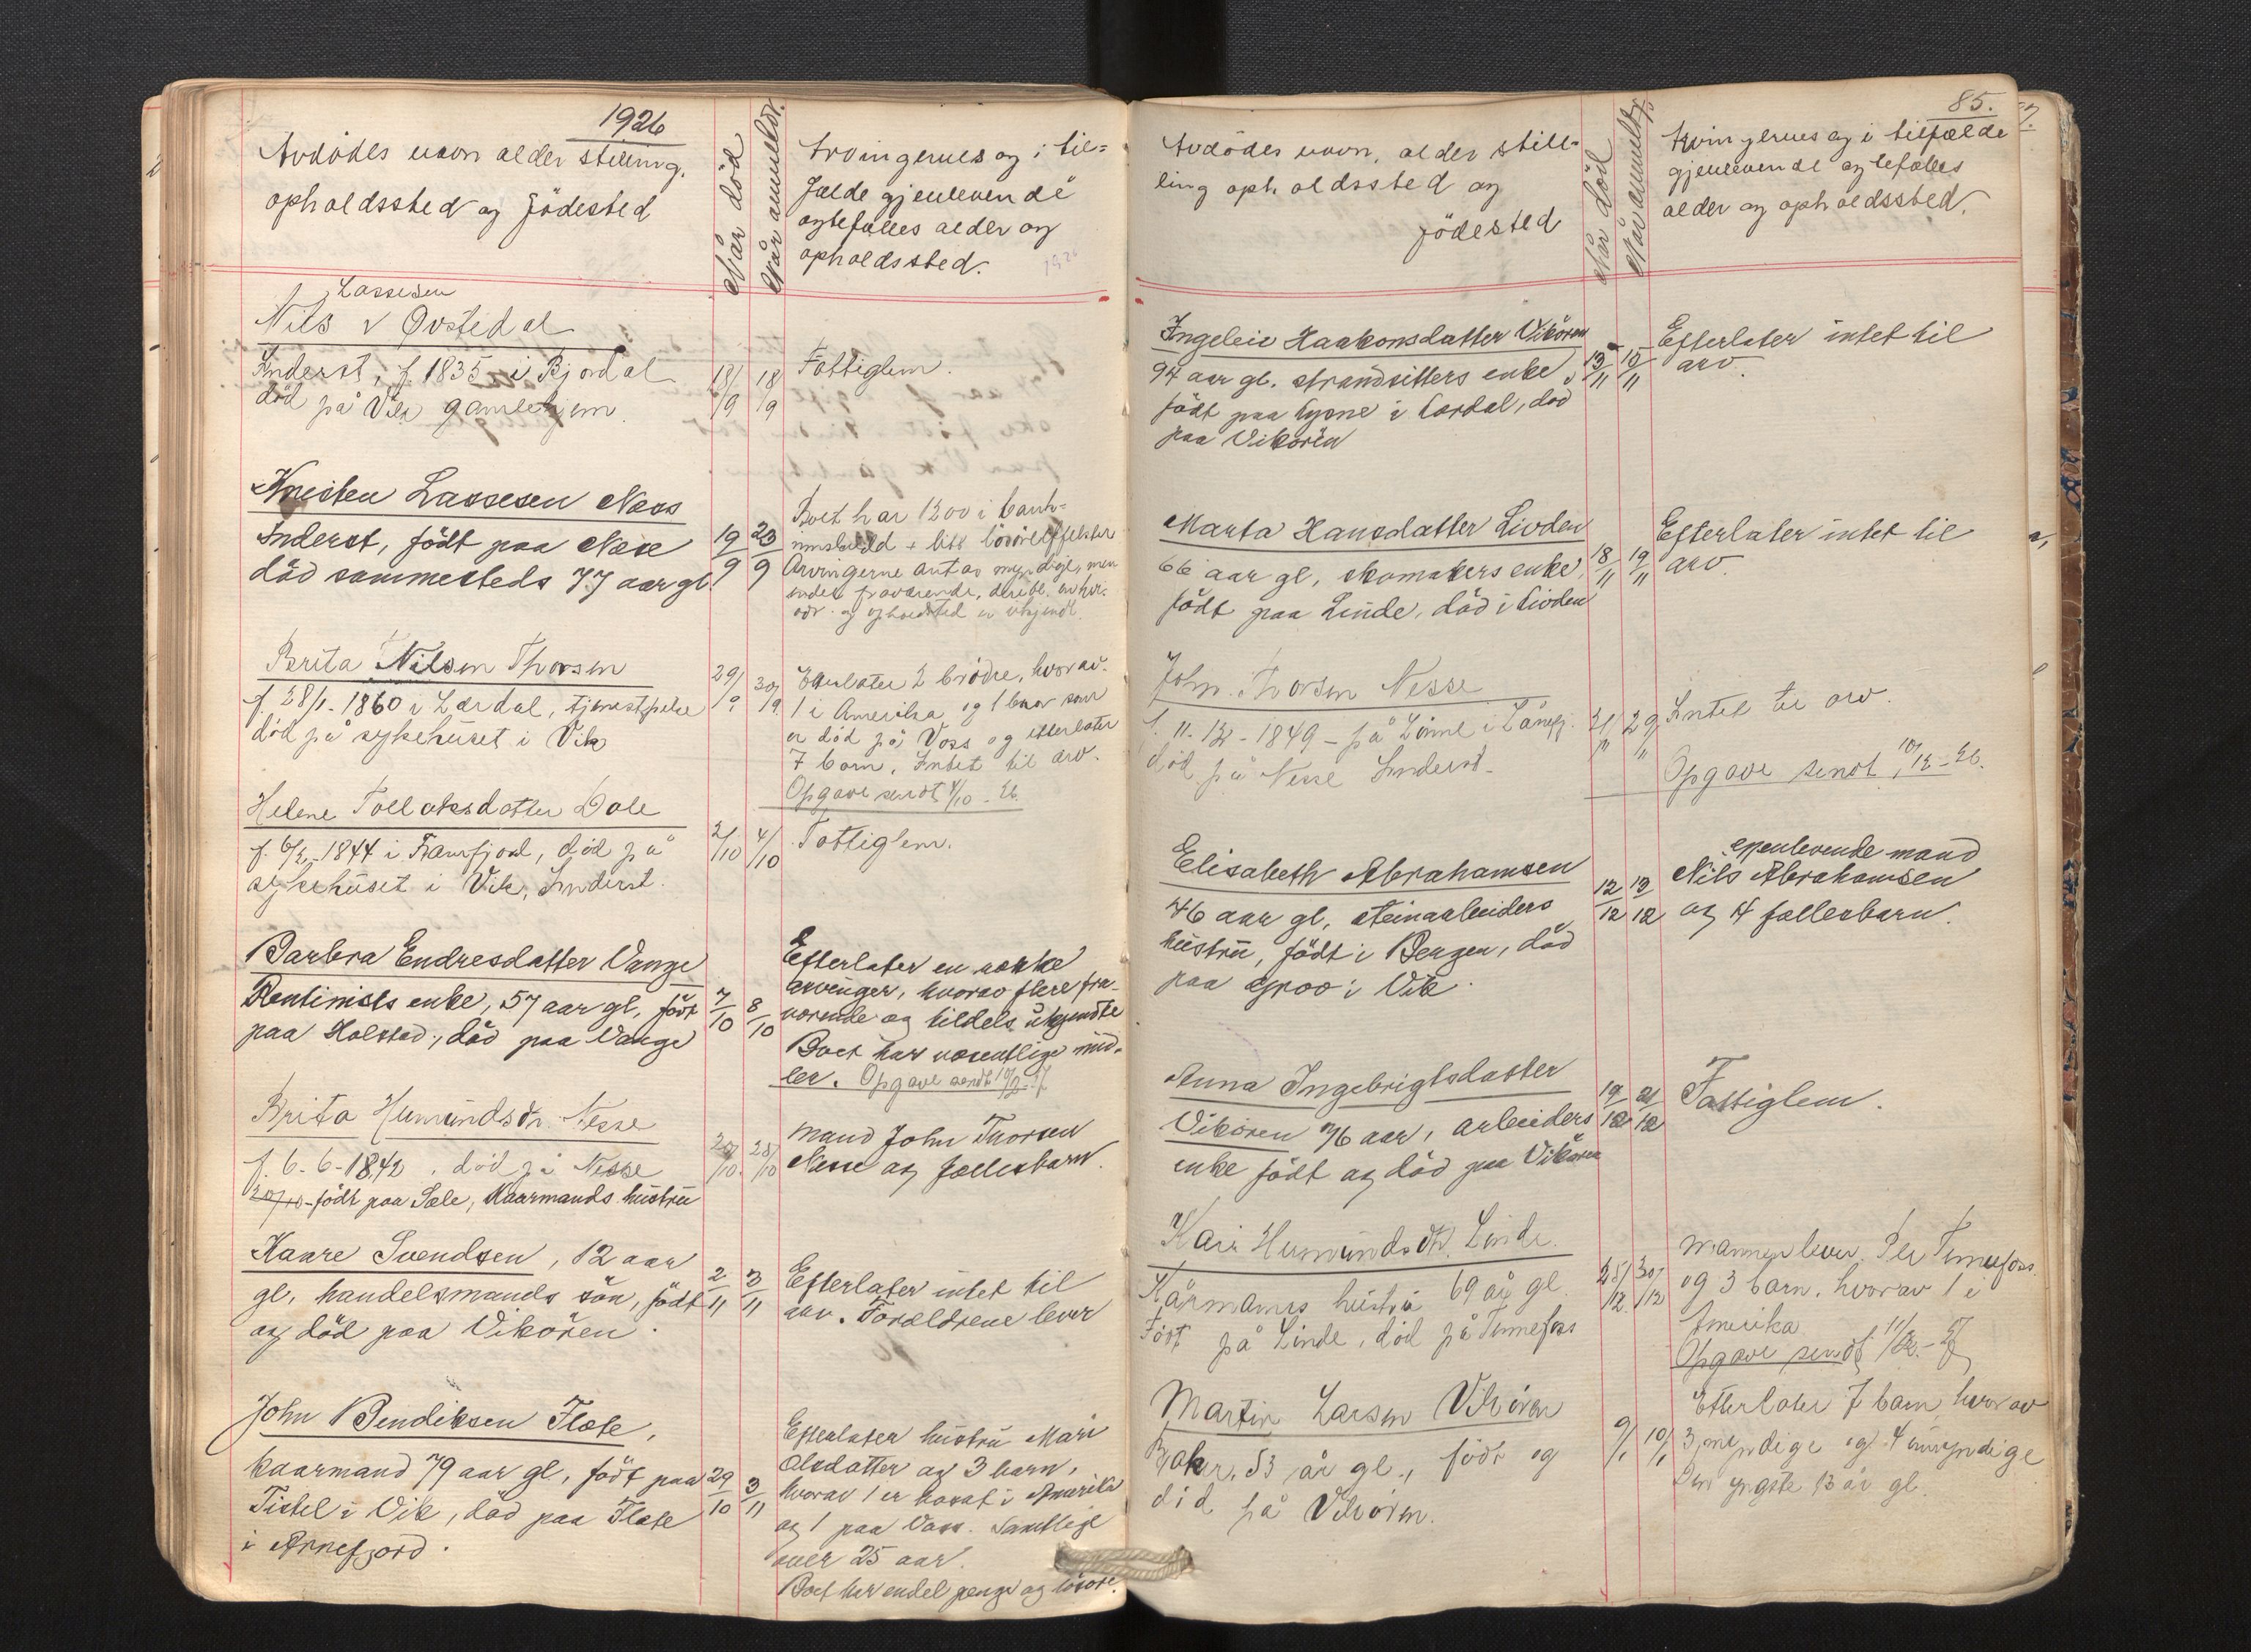 1926
Avdødes navn alder stilling,
opholdssted og födested
Når död
Når anmeldt.
Arvingernes og i til-
fælde gjenlevende
egtefælles alder og
opholdssted.
1926
Lassesen
Nils v Øvstedal
Inderst, f. 1835 i Bjordal
död på Vik gamlehjem
18/9
18/9
Fattiglem.
Kristen Lassesen Næss
Inderst, födt paa Næse
död sammesteds 77 aar gl.
19/9
23/9
Boet har 1200 i bank-
innskudd + litt lösöreeffekter
Arvingerne antas myndige, men
enden fraværende,
adr. og opholdsted er ukjendt.
Brita Nilsen Thorsen
f. 28/1-1860 i Lærdal, tjenestpike
död på sykehuset i Vik
29/9
30/9
Efterlater 2 brödre, hvorav
1 i Amerika og 1 bror som
er död på Voss og efterlater
7 born. Intet til arv.
Opgave sendt 4/10-26.
Helene Tollaksdatter Dale
f. 6/2-1844 i Framfjord, död på
sykehuset i Vik, Inderst.
2/10
4/10
Fattiglem.
Barbra Endresdatter Vange
Rentinists enke, 57 aar gl, födt
paa Holstad, död paa Vange
7/10
8/10
Efterlater en række
arvinger, hvorav flere fra-
værende og tildels ukjendte
Boet har væsentlige mid-
ler. Opgave sendt
Brita Humundsdtr. Nesse
f. 6-6-1842, död på Nesse
20/10 - födt paa Sæle, Kaarmands hustru
20/10.
28/10
Mand John Thorsen
Nesse og fællesbarn.
Kaare Svendsen, 12 aar
gl, handelsmands sön, födt
og död paa Vikören.
2/11
3/11
Efterlater intet til
arv. Foreldrene lever
John Bendiksen Flete,
kaarmand 79 aar gl, födt paa
Tistel i Vik, död paa Flete
i Arnefjord.
29/10
3/11
Efterlater hustru Mari
Olsdatter og 3 barn,
hvorav 1 er bosat i Amerika
og 1 paa Voss. Samtlige
over 25 aar.
Boet har endel penge og lösöre.
85.
Avdödes navn, alder still-
ling opholdssted og
födested
Når död
Når anmeldt
Arvingernes og i tilfælde
gjenlevende egtefælles
alder og opholdssted.
Ingeleiv Haakonsdatter Vikören
94 aar gl. strandsitters enke,
födt paa Lysne i Lærdal, död
paa Vikören
13/11
15/11
Efterlater intet til
arv.
Marta Hansdatter Livden
66 aar gl, skomakers enke,
födt paa Linde, död i Livden
18/11
19/11
Efterlater intet til
arv.
John Thorsen Nesse
f. 11-12-1849 - på
död på Nesse Inderst-
21/11
29/11
Intet til arv.
Opgave sendt 10/12-26.
Elisabeth Abrahamsen
46 aar gl, steinarbeiders
hustru, födt i Bergen, död
paa Groo i Vik.
12/12
13/12
gjenlevende mand
Nils Abrahamsen
og 4 fællesbarn.
Anna Ingebrigtsdatter
Vikören 76 aar, arbeiders
enke födt og död paa Vikören
19/12
21/12
Fattiglem.
Kari Humundsdtr. Linde.
Kårmanns hustru 69 år gl.
Födt på Linde, död på Tennefoss
25/12.
30/12
Mannen lever. Per Tennefoss.
og 3 barn, hvorav 1 i
Amerika
Opgave sendt
Martin Larsen Vikören
Baker, 53 år gl., födt og
död på Vikören.
9/1
10/1
Efterlater 7 barn hvorav
3 myndige og 4 umyndige
Den yngste 13 år gl.